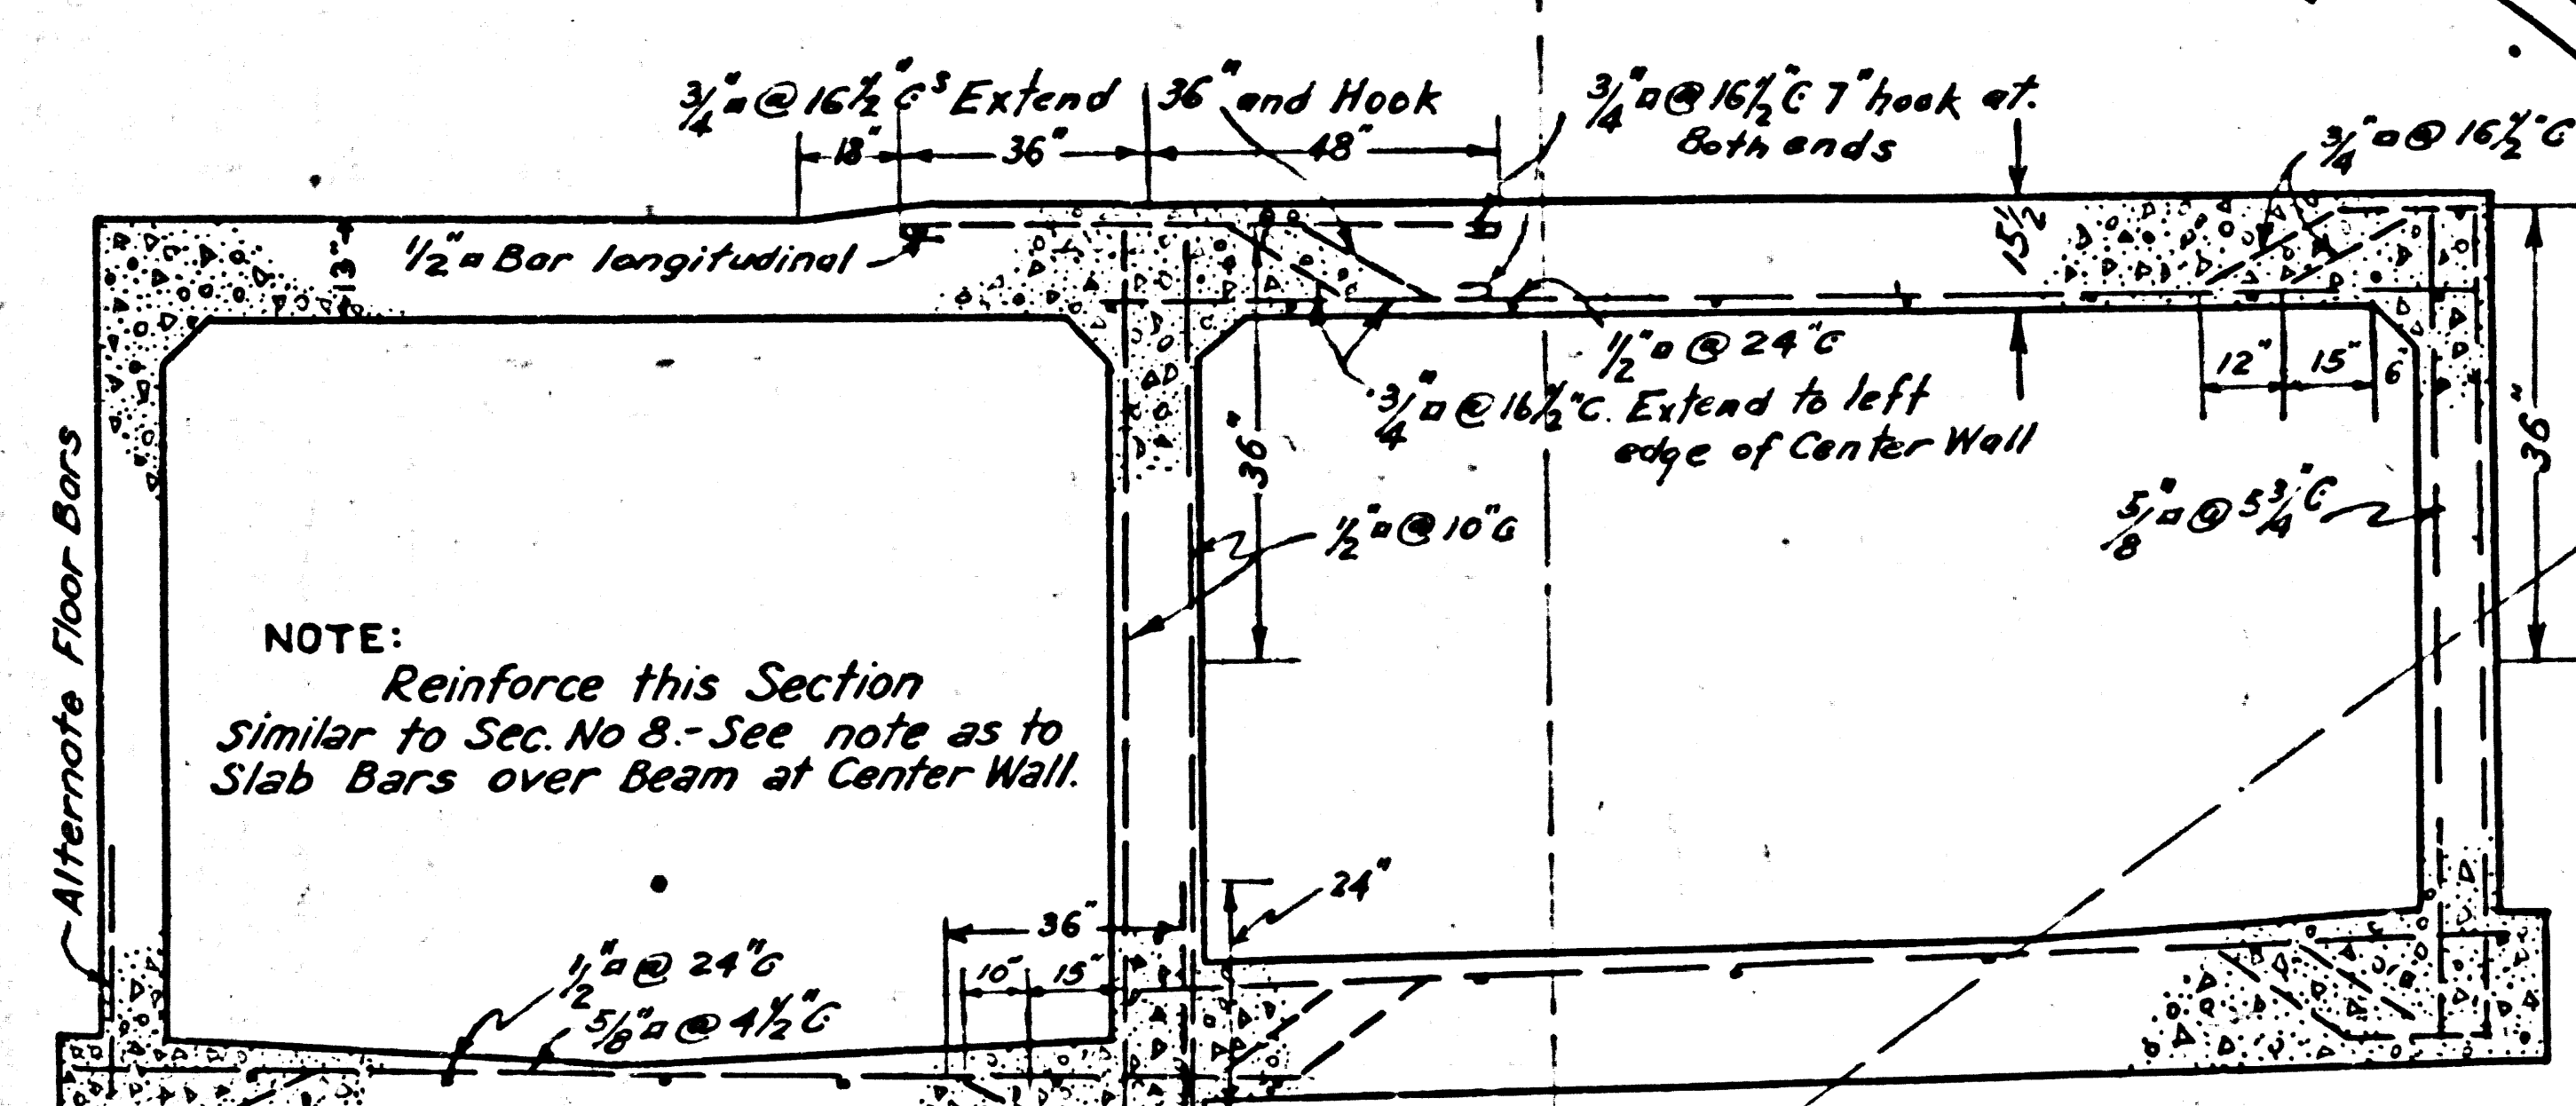 3/4"□ @ 16 1/2" Cs Extend 36" and Hook
3/4"□ @ 16 1/2" C 7" hook at
Both ends
3/4"□ @ 16 1/2" C
18" 36" 48"
15 1/2
13"
1/2"□ Bar longitudinal
1/2"□ @ 24"C
3/4"□ @ 16 1/2"C. Extend to left
edge of Center Wall
12" 15" 6"
36"
36"
5/8"□ @ 5 3/4" C
1/2"□ @ 10"C
Alternate Floor Bars
NOTE:
Reinforce this Section
Similar to Sec. No 8.- See note as to
Slab Bars over Beam at Center Wall.
24"
36"
10" 15"
1/2"□ @ 24"C
5/8"□ @ 4 1/2"C